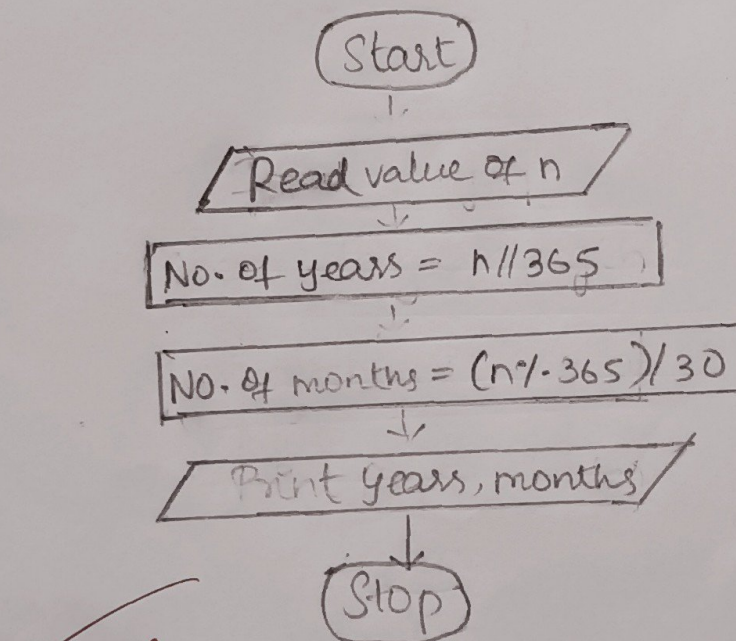 Start
Read value of n
No. of years = n//365
NO. of months = (n%365)/30
Print years, months
Stop